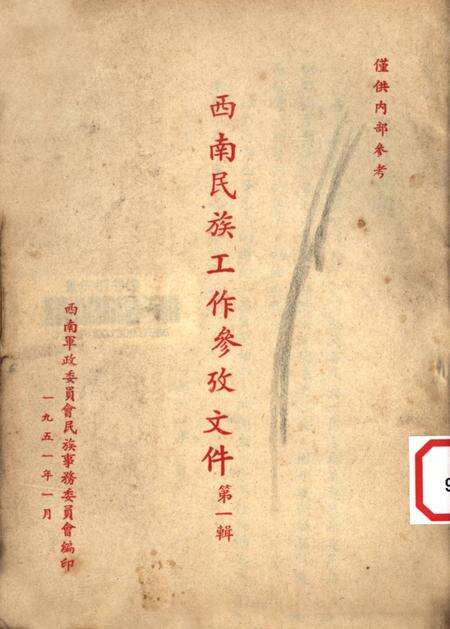 僅供內部參考
西南民族工作參攷文件第一輯
西南軍政委員會民族事務委員會編印
一九五一年一月
9